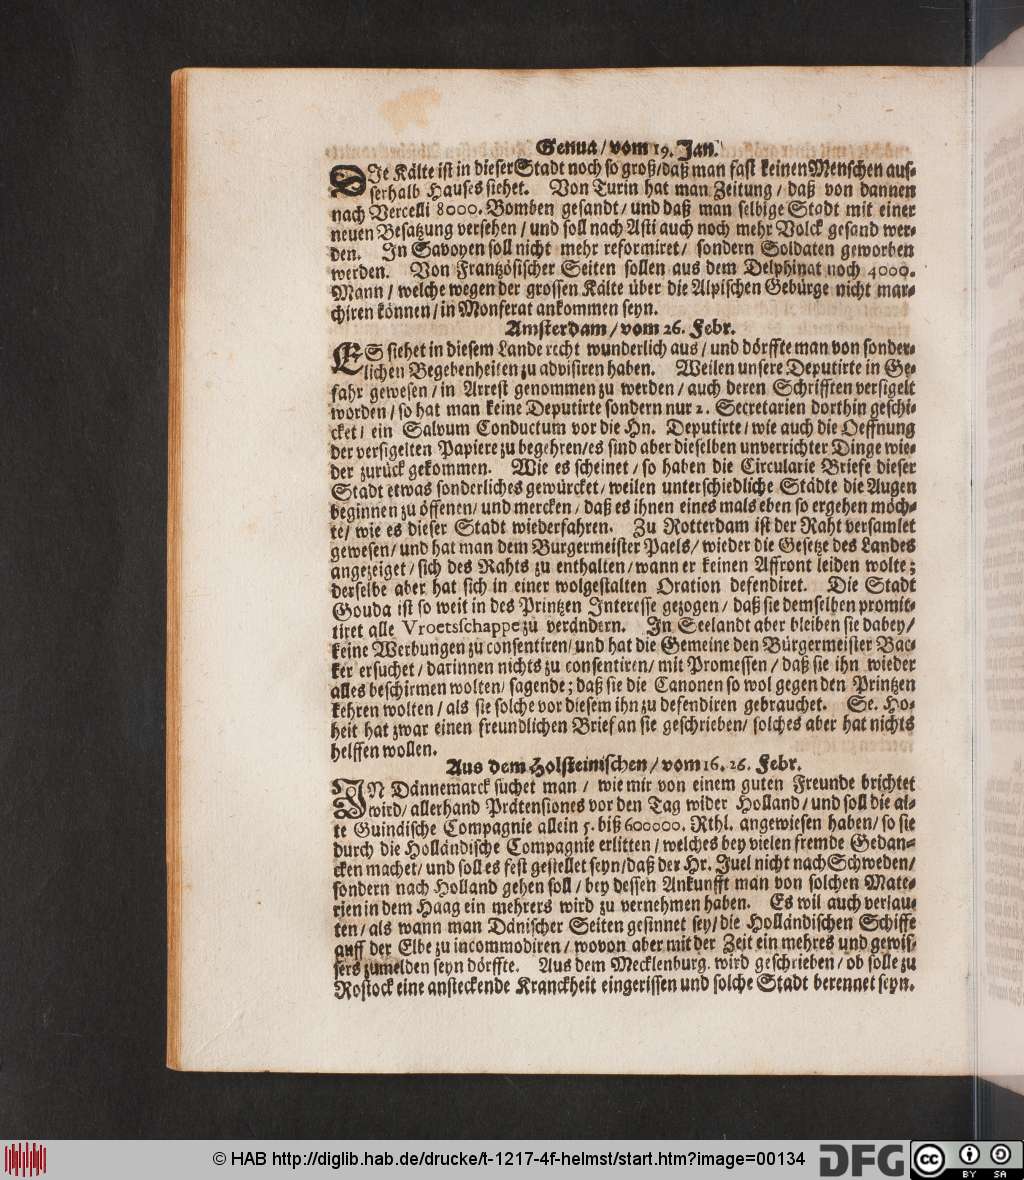 Genua / vom 19. Jan.
DIe Kälte ist in dieser Stadt noch so groß / daß man fast keinen Menschen aus-
serhalb Hauses siehet. Von Turin hat man Zeitung / daß von dannen
nach Vercelli 8000. Bomben gesandt / und daß man selbige Stadt mit einer
neuen Besatzung versehen / und soll nach Asti auch noch mehr Volck gesand wer-
den. In Savoyen soll nicht mehr reformiret / sondern Soldaten geworben
werden. Von Frantzösischer Seiten sollen aus dem Delphinat noch 4000.
Mann / welche wegen der grossen Kälte über die Alpischen Gebürge nicht mar-
chiren können / in Monferat ankommen seyn.
Amsterdam / vom 26. Febr.
ES siehet in diesem Lande recht wunderlich aus / und dörffte man von sonder-
lichen Begebenheiten zu advisiren haben. Weilen unsere Deputirte in Ge-
fahr gewesen / in Arrest genommen zu werden / auch deren Schrifften versigelt
worden / so hat man keine Deputirte sondern nur 2. Secretarien dorthin geschi-
cket / ein Salvum Conductum vor die Hn. Deputirte / wie auch die Oeffnung
der versigelten Papiere zu begehren / es sind aber dieselben unverrichter Dinge wie-
der zurück gekommen. Wie es scheinet / so haben die Circularie Briefe dieser
Stadt etwas sonderliches gewürcket / weilen unterschiedliche Städte die Augen
beginnen zu öffenen / und mercken / daß es ihnen eines mals eben so ergehen möch-
te / wie es dieser Stadt wiederfahren. Zu Rotterdam ist der Raht versamlet
gewesen / und hat man dem Burgermeister Paels / wieder die Gesetze des Landes
angezeiget / sich des Rahts zu enthalten / wann er keinen Affront leiden wolte;
derselbe aber hat sich in einer wolgestalten Oration defendiret. Die Stadt
Gouda ist so weit in des Printzen Interesse gezogen / daß sie demselben promit-
tiret alle Vroetsschappe zu verändern. In Seelandt aber bleiben sie dabey /
keine Werbungen zu consentiren / und hat die Gemeine den Bürgermeister Bac-
ker ersuchet / darinnen nichts zu consentiren / mit Promessen / daß sie ihn wieder
alles beschirmen wolten / sagende; daß sie die Canonen so wol gegen den Printzen
kehren wolten / als sie solche vor diesem ihn zu defendiren gebrauchet. Se. Ho-
heit hat zwar einen freundlichen Brief an sie geschrieben / solches aber hat nichts
helffen wollen.
Aus dem Holsteinischen / vom 16. 26. Febr.
IN Dännemarck suchet man / wie mir von einem guten Freunde brichtet
wird / allerhand Prätensiones vor den Tag wider Holland / und soll die al-
te Guindische Compagnie allein 5. biß 600000. Rthl. angewiesen haben / so sie
durch die Holländische Compagnie erlitten / welches bey vielen fremde Gedan-
cken machet / und soll es fest gestellet seyn / daß der Hr. Juel nicht nach Schweden /
sondern nach Holland gehen soll / bey dessen Ankunfft man von solchen Mate-
rien in dem Haag ein mehrers wird zu vernehmen haben. Es wil auch verlau-
ten / als wann man Dänischer Seiten gesinnet sey / die Holländischen Schiffe
auff der Elbe zu incommodiren / wovon aber mit der Zeit ein mehres und gewis-
sers zumelden seyn dörffte. Aus dem Mecklenburg. wird geschrieben / ob solle zu
Rostock eine ansteckende Kranckheit eingerissen und solche Stadt berennet seyn.
© HAB http://diglib.hab.de/drucke/t-1217-4f-helmst/start.htm?image=00134
DFG
cc BY SA